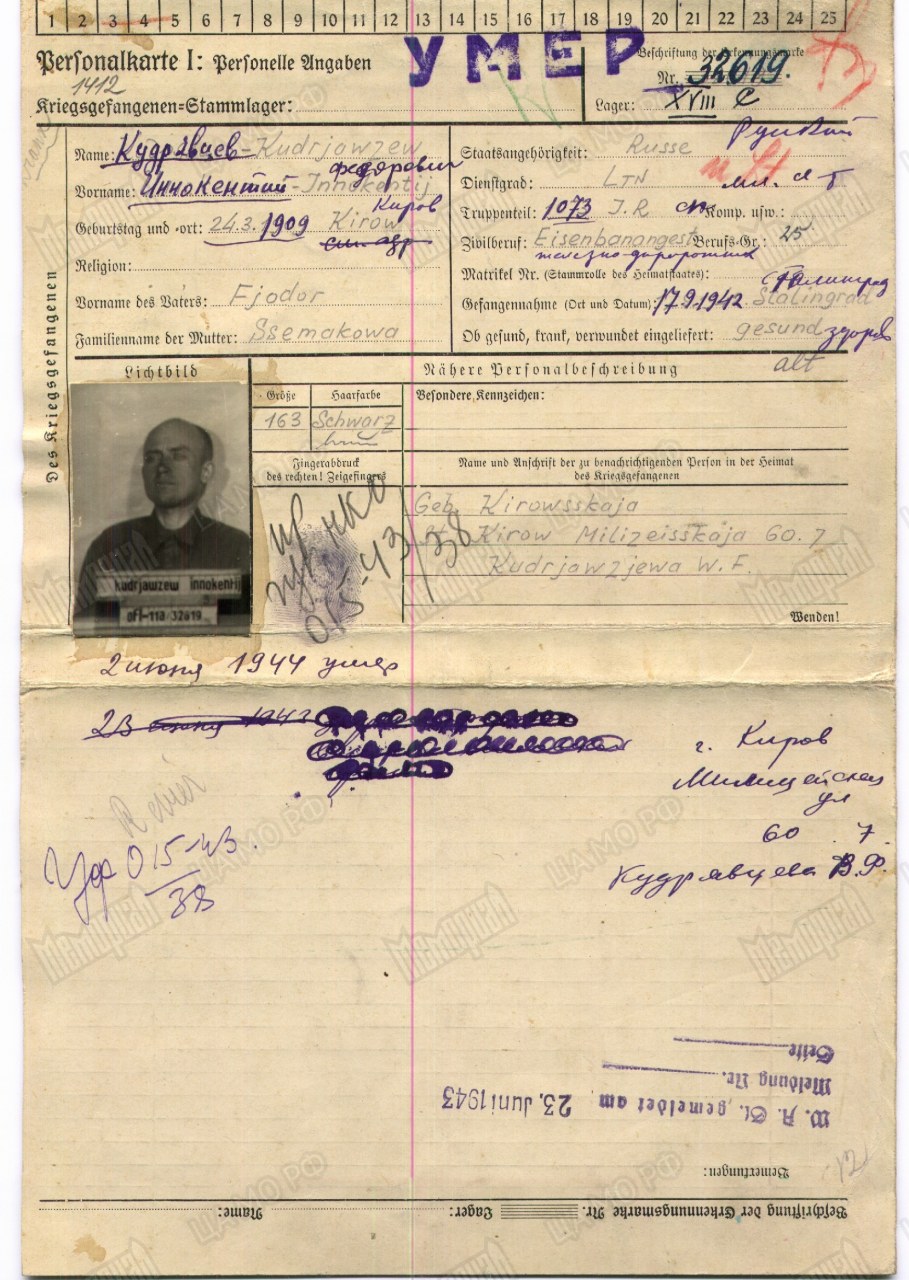 1 2 3 4 5 6 7 8 9 10 11 12 13 14 15 16 17 18 19 20 21 22 23 24 25
Personalkarte I: Personelle Angaben
УМЕР
Beschriftung der Erkennungsmarke
Nr. 32619.
1412
Kriegsgefangenen=Stammlager:
Lager: XVIII C
Des Kriegsgefangenen
Name: Кудрявцев - Kudrjawzew
Федорович
Vorname: Иннокентий - Innokentij
Киров
Geburtstag und -ort: 24.3.1909 Kirow
Religion:
Vorname des Vaters: Fjodor
Familienname der Mutter: Ssemakowa
Русский
Staatsangehörigkeit: Russe
Dienstgrad: LTN мл. л-т
Truppenteil: 1073 J.R сп Komp. usw.:
Zivilberuf: Eisenbanangest Berufs-Gr.: 25
железно-дорожник
Matrikel Nr. (Stammrolle des Heimatstaates):
Сталинград
Gefangennahme (Ort und Datum): 17.9.1942 Stalingrad
Ob gesund, krank, verwundet eingeliefert: gesund здоров
Lichtbild
Nähere Personalbeschreibung
alt
Größe Haarfarbe
163 Schwarz
Besondere Kennzeichen:
Fingerabdruck
des rechten! Zeigefingers
Name und Anschrift der zu benachrichtigenden Person in der Heimat
des Kriegsgefangenen
Geb. Kirowsskaja
St. Kirow Milizeisskaja 60. 7
Kudrjawzjewa W.F.
Wenden!
Kudrjawzew Innokentij
Ofl-11a 32619
015-43/38
2 июня 1944 умер
23 июня 1943
г. Киров
Милицейская
ул
60 7
Кудрявцева В.Ф.
Revier
015-43.
38
Seite
Meldung Nr.
W. A. St. gemeldet am 23. Juni 1943
Bemerkungen:
12
Beschriftung der Erkennungsmarke Nr. Lager: Name:
Мемориал
ЦАМО РФ